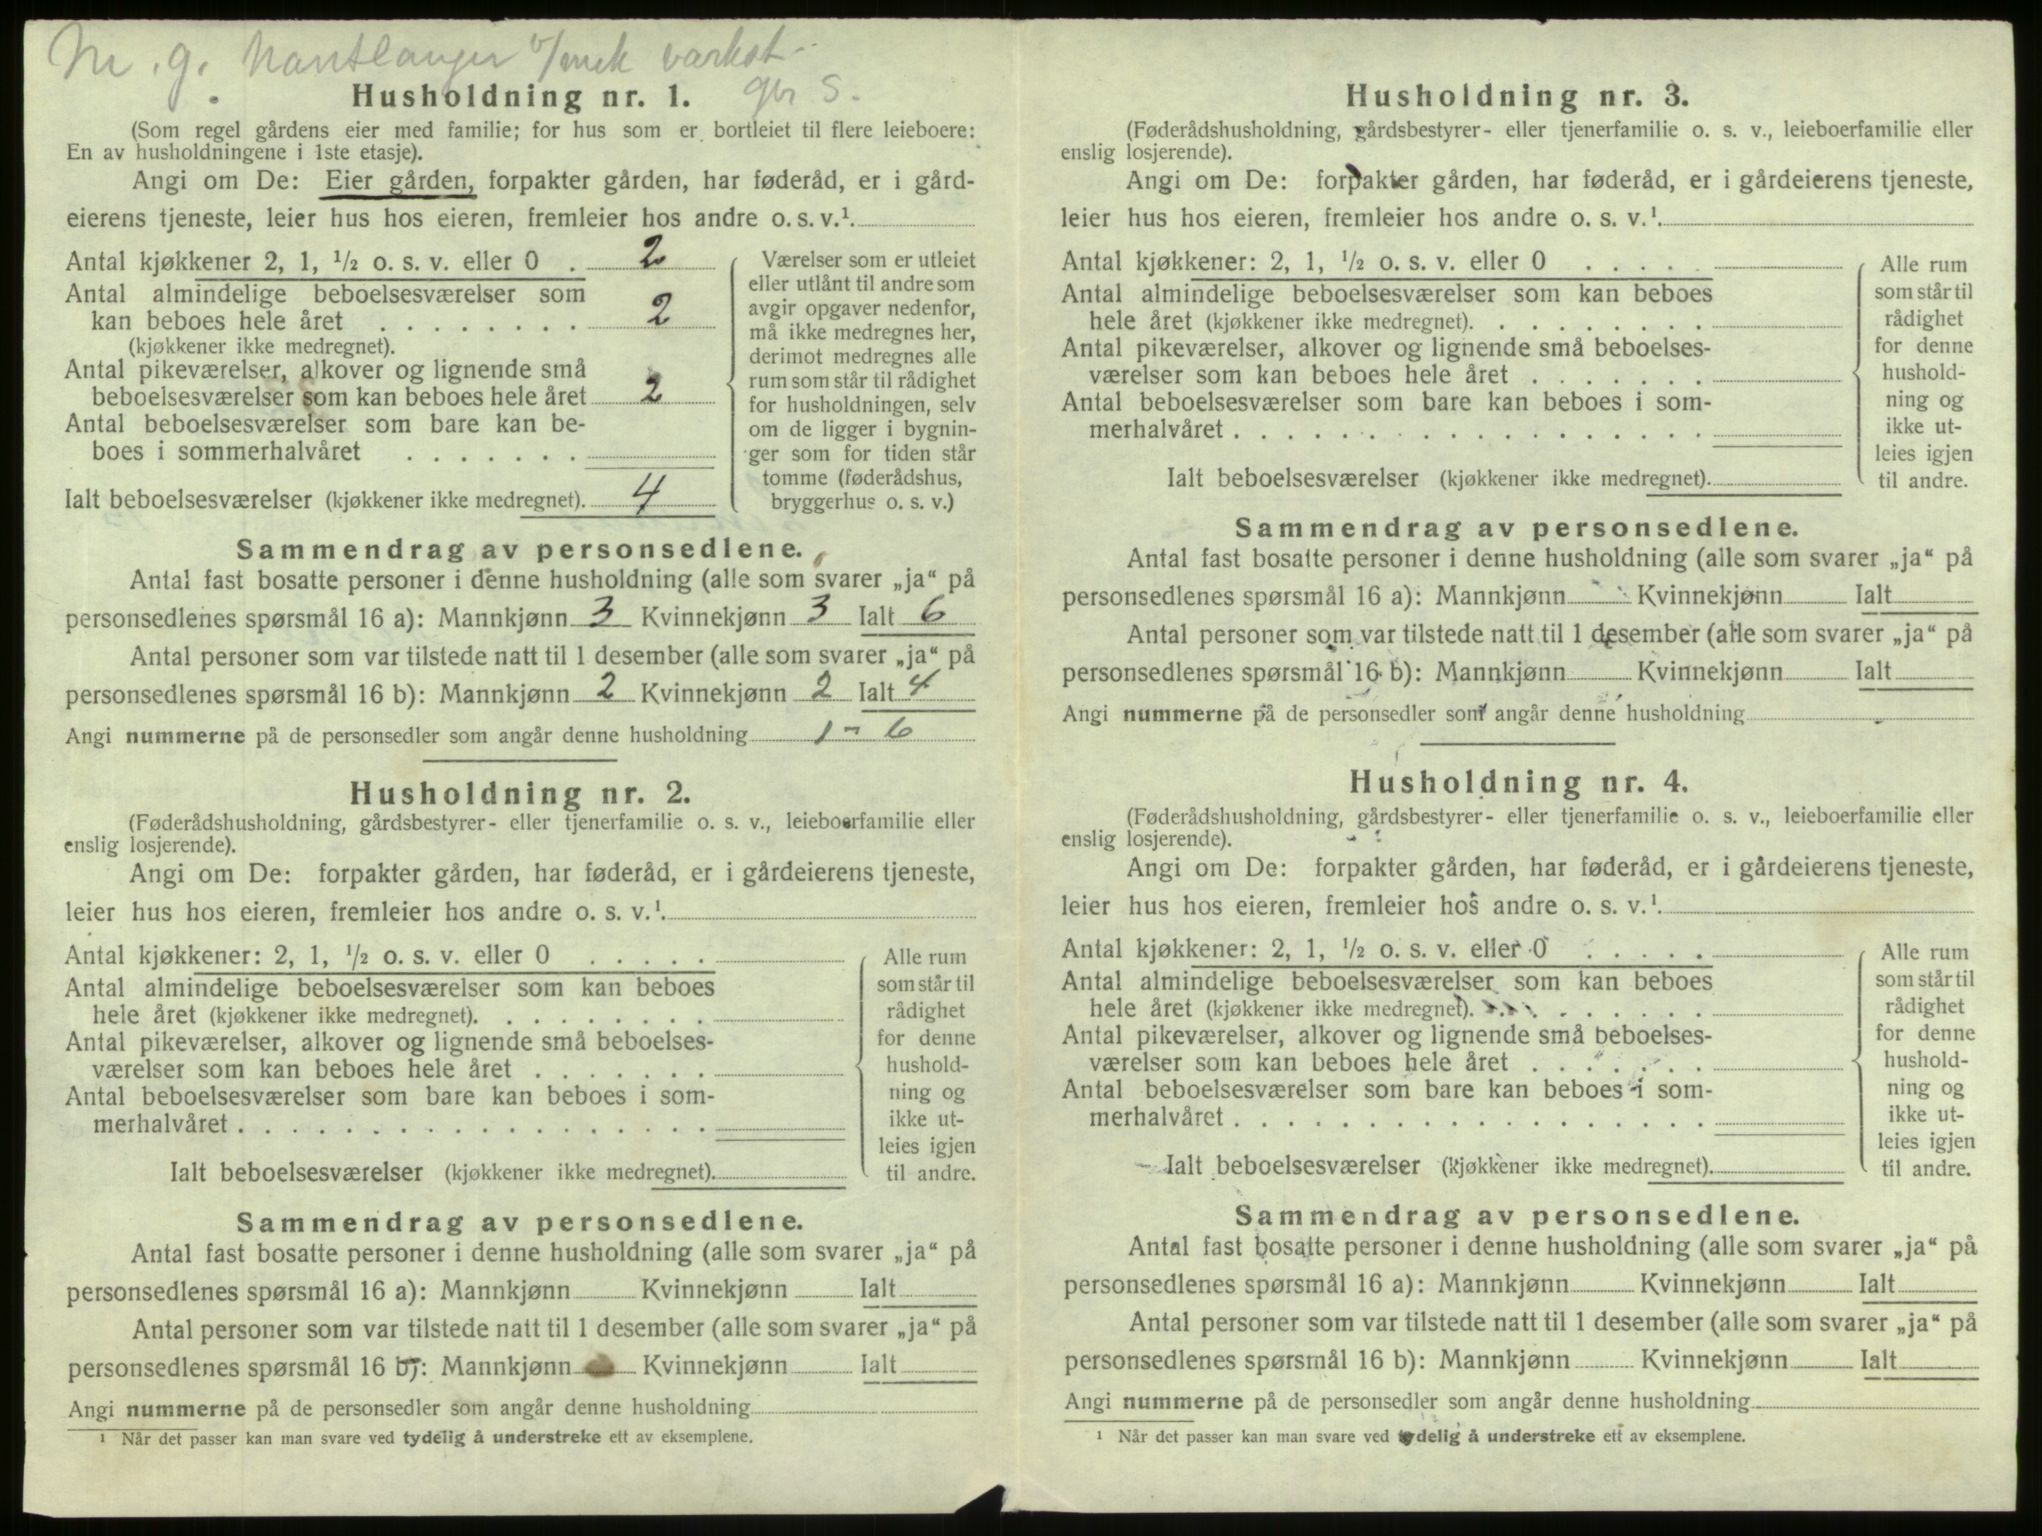 m. g. v/mek varkst.
gbr S.
Husholdning nr. 1.
(Som regel gårdens eier med familie; for hus som er bortleiet til flere leieboere:
En av husholdningene i 1ste etasje).
Angi om De: Eier gården, forpakter gården, har føderåd, er i gård-
eierens tjeneste, leier hus hos eieren, fremleier hos andre o. s. v.¹.
Antal kjøkkener 2, 1, ½ o. s. v. eller 0 . 2
Antal almindelige beboelsesværelser som
kan beboes hele året . . . . . . . . 2
(kjøkkener ikke medregnet).
Antal pikeværelser, alkover og lignende små
beboelsesværelser som kan beboes hele året 2
Antal beboelsesværelser som bare kan be-
boes i sommerhalvåret . . . . . . .
Ialt beboelsesværelser (kjøkkener ikke medregnet). 4
Værelser som er utleiet
eller utlånt til andre som
avgir opgaver nedenfor,
må ikke medregnes her,
derimot medregnes alle
rum som står til rådighet
for husholdningen, selv
om de ligger i bygnin-
ger som for tiden står
tomme (føderådshus,
bryggerhus o. s. v.)
Sammendrag av personsedlene.
Antal fast bosatte personer i denne husholdning (alle som svarer „ja“ på
personsedlenes spørsmål 16 a): Mannkjønn 3 Kvinnekjønn 3 Ialt 6
Antal personer som var tilstede natt til 1 desember (alle som svarer „ja“ på
personsedlenes spørsmål 16 b): Mannkjønn 2 Kvinnekjønn 2 Ialt 4
Angi nummerne på de personsedler som angår denne husholdning 1 - 6
Husholdning nr. 2.
(Føderådshusholdning, gårdsbestyrer- eller tjenerfamilie o. s. v., leieboerfamilie eller
enslig losjerende).
Angi om De: forpakter gården, har føderåd, er i gårdeierens tjeneste,
leier hus hos eieren, fremleier hos andre o. s. v.¹.
Antal kjøkkener: 2, 1, ½ o. s. v. eller 0 . . . . .
Antal almindelige beboelsesværelser som kan beboes
hele året (kjøkkener ikke medregnet). . . . . . . . .
Antal pikeværelser, alkover og lignende små beboelses-
værelser som kan beboes hele året . . . . . . .
Antal beboelsesværelser som bare kan beboes i som-
merhalvåret . . . . . . . . . . . . . . . . . .
Ialt beboelsesværelser (kjøkkener ikke medregnet).
Alle rum
som står til
rådighet
for denne
hushold-
ning og
ikke ut-
leies igjen
til andre.
Sammendrag av personsedlene.
Antal fast bosatte personer i denne husholdning (alle som svarer „ja“ på
personsedlenes spørsmål 16 a): Mannkjønn Kvinnekjønn Ialt
Antal personer som var tilstede natt til 1 desember (alle som svarer „ja“ på
personsedlenes spørsmål 16 b): Mannkjønn Kvinnekjønn Ialt
Angi nummerne på de personsedler som angår denne husholdning
¹ Når det passer kan man svare ved tydelig å understreke ett av eksemplene.
Husholdning nr. 3.
(Føderådshusholdning, gårdsbestyrer- eller tjenerfamilie o. s. v., leieboerfamilie eller
enslig losjerende).
Angi om De: forpakter gården, har føderåd, er i gårdeierens tjeneste,
leier hus hos eieren, fremleier hos andre o. s. v.¹.
Antal kjøkkener: 2, 1, ½ o. s. v. eller 0 . . . . .
Antal almindelige beboelsesværelser som kan beboes
hele året (kjøkkener ikke medregnet). . . . . . . . .
Antal pikeværelser, alkover og lignende små beboelses-
værelser som kan beboes hele året . . . . . . .
Antal beboelsesværelser som bare kan beboes i som-
merhalvåret . . . . . . . . . . . . . . . . . .
Ialt beboelsesværelser (kjøkkener ikke medregnet).
Alle rum
som står til
rådighet
for denne
hushold-
ning og
ikke ut-
leies igjen
til andre.
Sammendrag av personsedlene.
Antal fast bosatte personer i denne husholdning (alle som svarer „ja“ på
personsedlenes spørsmål 16 a): Mannkjønn Kvinnekjønn Ialt
Antal personer som var tilstede natt til 1 desember (alle som svarer „ja“ på
personsedlenes spørsmål 16 b): Mannkjønn Kvinnekjønn Ialt
Angi nummerne på de personsedler som angår denne husholdning
Husholdning nr. 4.
(Føderådshusholdning, gårdsbestyrer- eller tjenerfamilie o. s. v., leieboerfamilie eller
enslig losjerende).
Angi om De: forpakter gården, har føderåd, er i gårdeierens tjeneste,
leier hus hos eieren, fremleier hos andre o. s. v.¹.
Antal kjøkkener: 2, 1, ½ o. s. v. eller 0 . . . . .
Antal almindelige beboelsesværelser som kan beboes
hele året (kjøkkener ikke medregnet). . . . . . . . .
Antal pikeværelser, alkover og lignende små beboelses-
værelser som kan beboes hele året . . . . . . .
Antal beboelsesværelser som bare kan beboes i som-
merhalvåret . . . . . . . . . . . . . . . . . .
Ialt beboelsesværelser (kjøkkener ikke medregnet).
Alle rum
som står til
rådighet
for denne
hushold-
ning og
ikke ut-
leies igjen
til andre.
Sammendrag av personsedlene.
Antal fast bosatte personer i denne husholdning (alle som svarer „ja“ på
personsedlenes spørsmål 16 a): Mannkjønn Kvinnekjønn Ialt
Antal personer som var tilstede natt til 1 desember (alle som svarer „ja“ på
personsedlenes spørsmål 16 b): Mannkjønn Kvinnekjønn Ialt
Angi nummerne på de personsedler som angår denne husholdning
¹ Når det passer kan man svare ved tydelig å understreke ett av eksemplene.